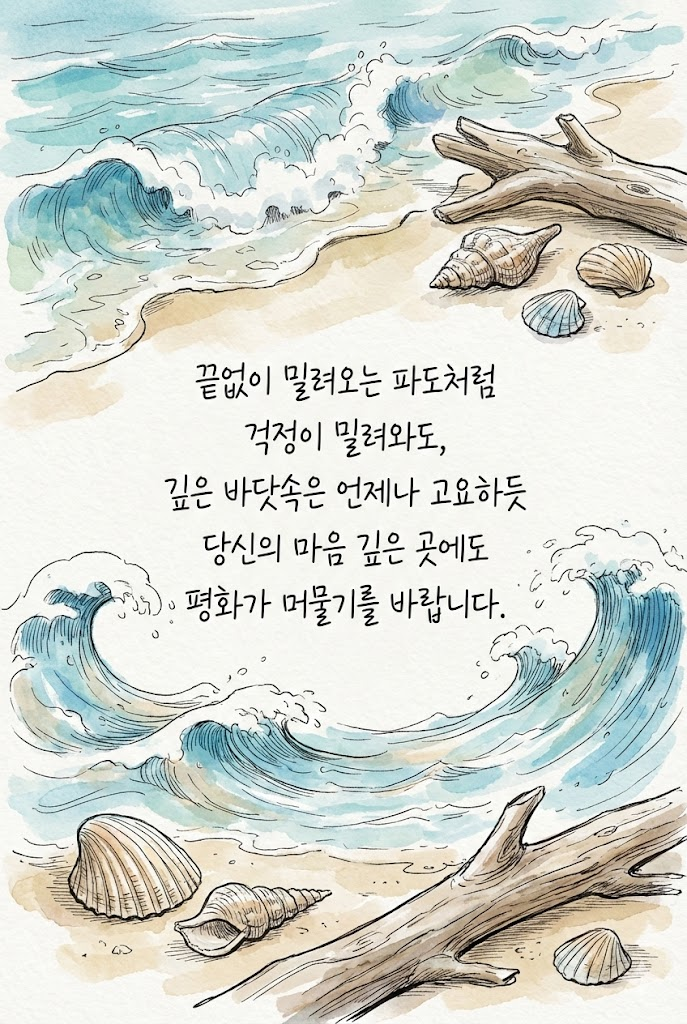 끝없이 밀려오는 파도처럼
걱정이 밀려와도,
깊은 바닷속은 언제나 고요하듯
당신의 마음 깊은 곳에도
평화가 머물기를 바랍니다.